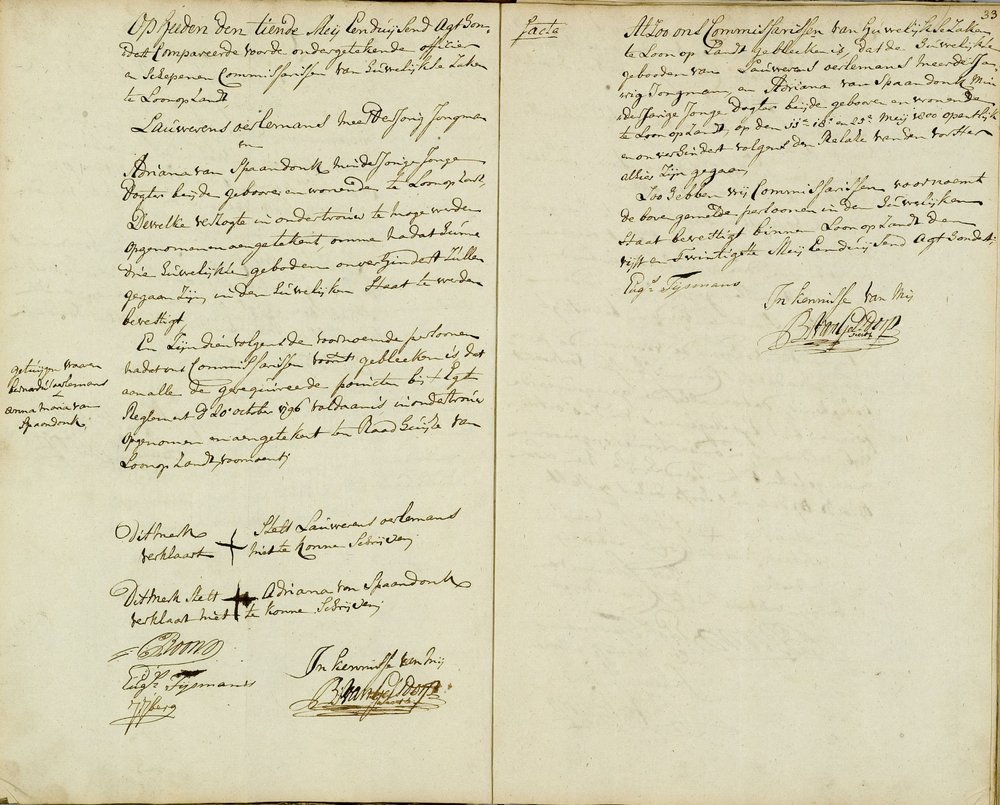 Op heeden den tiende Meij Eenduijsend Agthon-
dert Compareerde voor de ondergetekende officier
en Schepenen Commissarissen van huwelijkse Zaken
te Loon op Zandt
Lauwerens oerlemans meerderjarig Jongman
en
Adriana van Spaandonk minderjarige Jonge
Dogter beijde gebooren en wonende te Loon op Zandt,
Dewelke versogte in ondertrouw te moge werden
opgenomen en aengetekent omme nadat hunne
drie huwelijkse geboden onverhindert zullen
gegaan zijn, in den huwelijken Staat te werden
bevestigt,
En Zijn dienvolgende voornoemde persoonen
nadat ons Commissarissen voorn.t gebleeken is dat
aan alle de gerequireerde poincten bij
Reglement d' 20 october 1796 voldaan is in ondertrouw
opgenomen en aengetekent ten Raadhuijse van
Loon op Zandt, voornoemt,
getuijgen waaren
bernardus oerlemans
en
anna maria van
Spaandonk,
Dit merk + Stelt Lauwerens oerlemans
verklaart niet te konne Schrijven
Dit merk Stelt + Adriana van Spaandonk
verklaart niet te konne Schrijven
Eug.s Tijsmans
In kennisse van Mij
33
facta
Alzoo ons Commissarissen van huwelijkse Zaken
te Loon op Zandt gebleeken is, dat de huwelijkse
gebooden van Lauwerens oerlemans meerderja-
rig Jongman, en Adriana van Spaandonk, min-
derjarige Jonge Dogter beijde gebooren en wonende
te Loon op Zandt, op den 11.e 18.e en 25.e Meij 1800 openlijk
en onverhindert volgens den Relaas van den vorster
alhier Zijn gegaan,
Zoo hebben wij Commissarissen voornoemt
de bovengemelde persoonen in den huwelijken
Staat bevestigt binnen Loon op Zandt den
vijff en twintigste Meij Eenduijsend Agthondert,
Eug.s Tijsmans
In kennisse van Mij